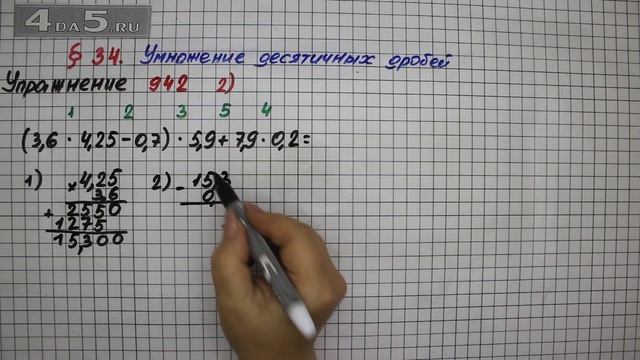 4DA5.RU
§ 34. Умножение десятичных дробей
Упражнение 942 2)
1 2 3 5 4
(3,6 · 4,25 - 0,7) · 5,9 + 7,9 · 0,2 =
1) × 4,25
3,6
+ 2550
1275
15,300
2) - 15,3
0,